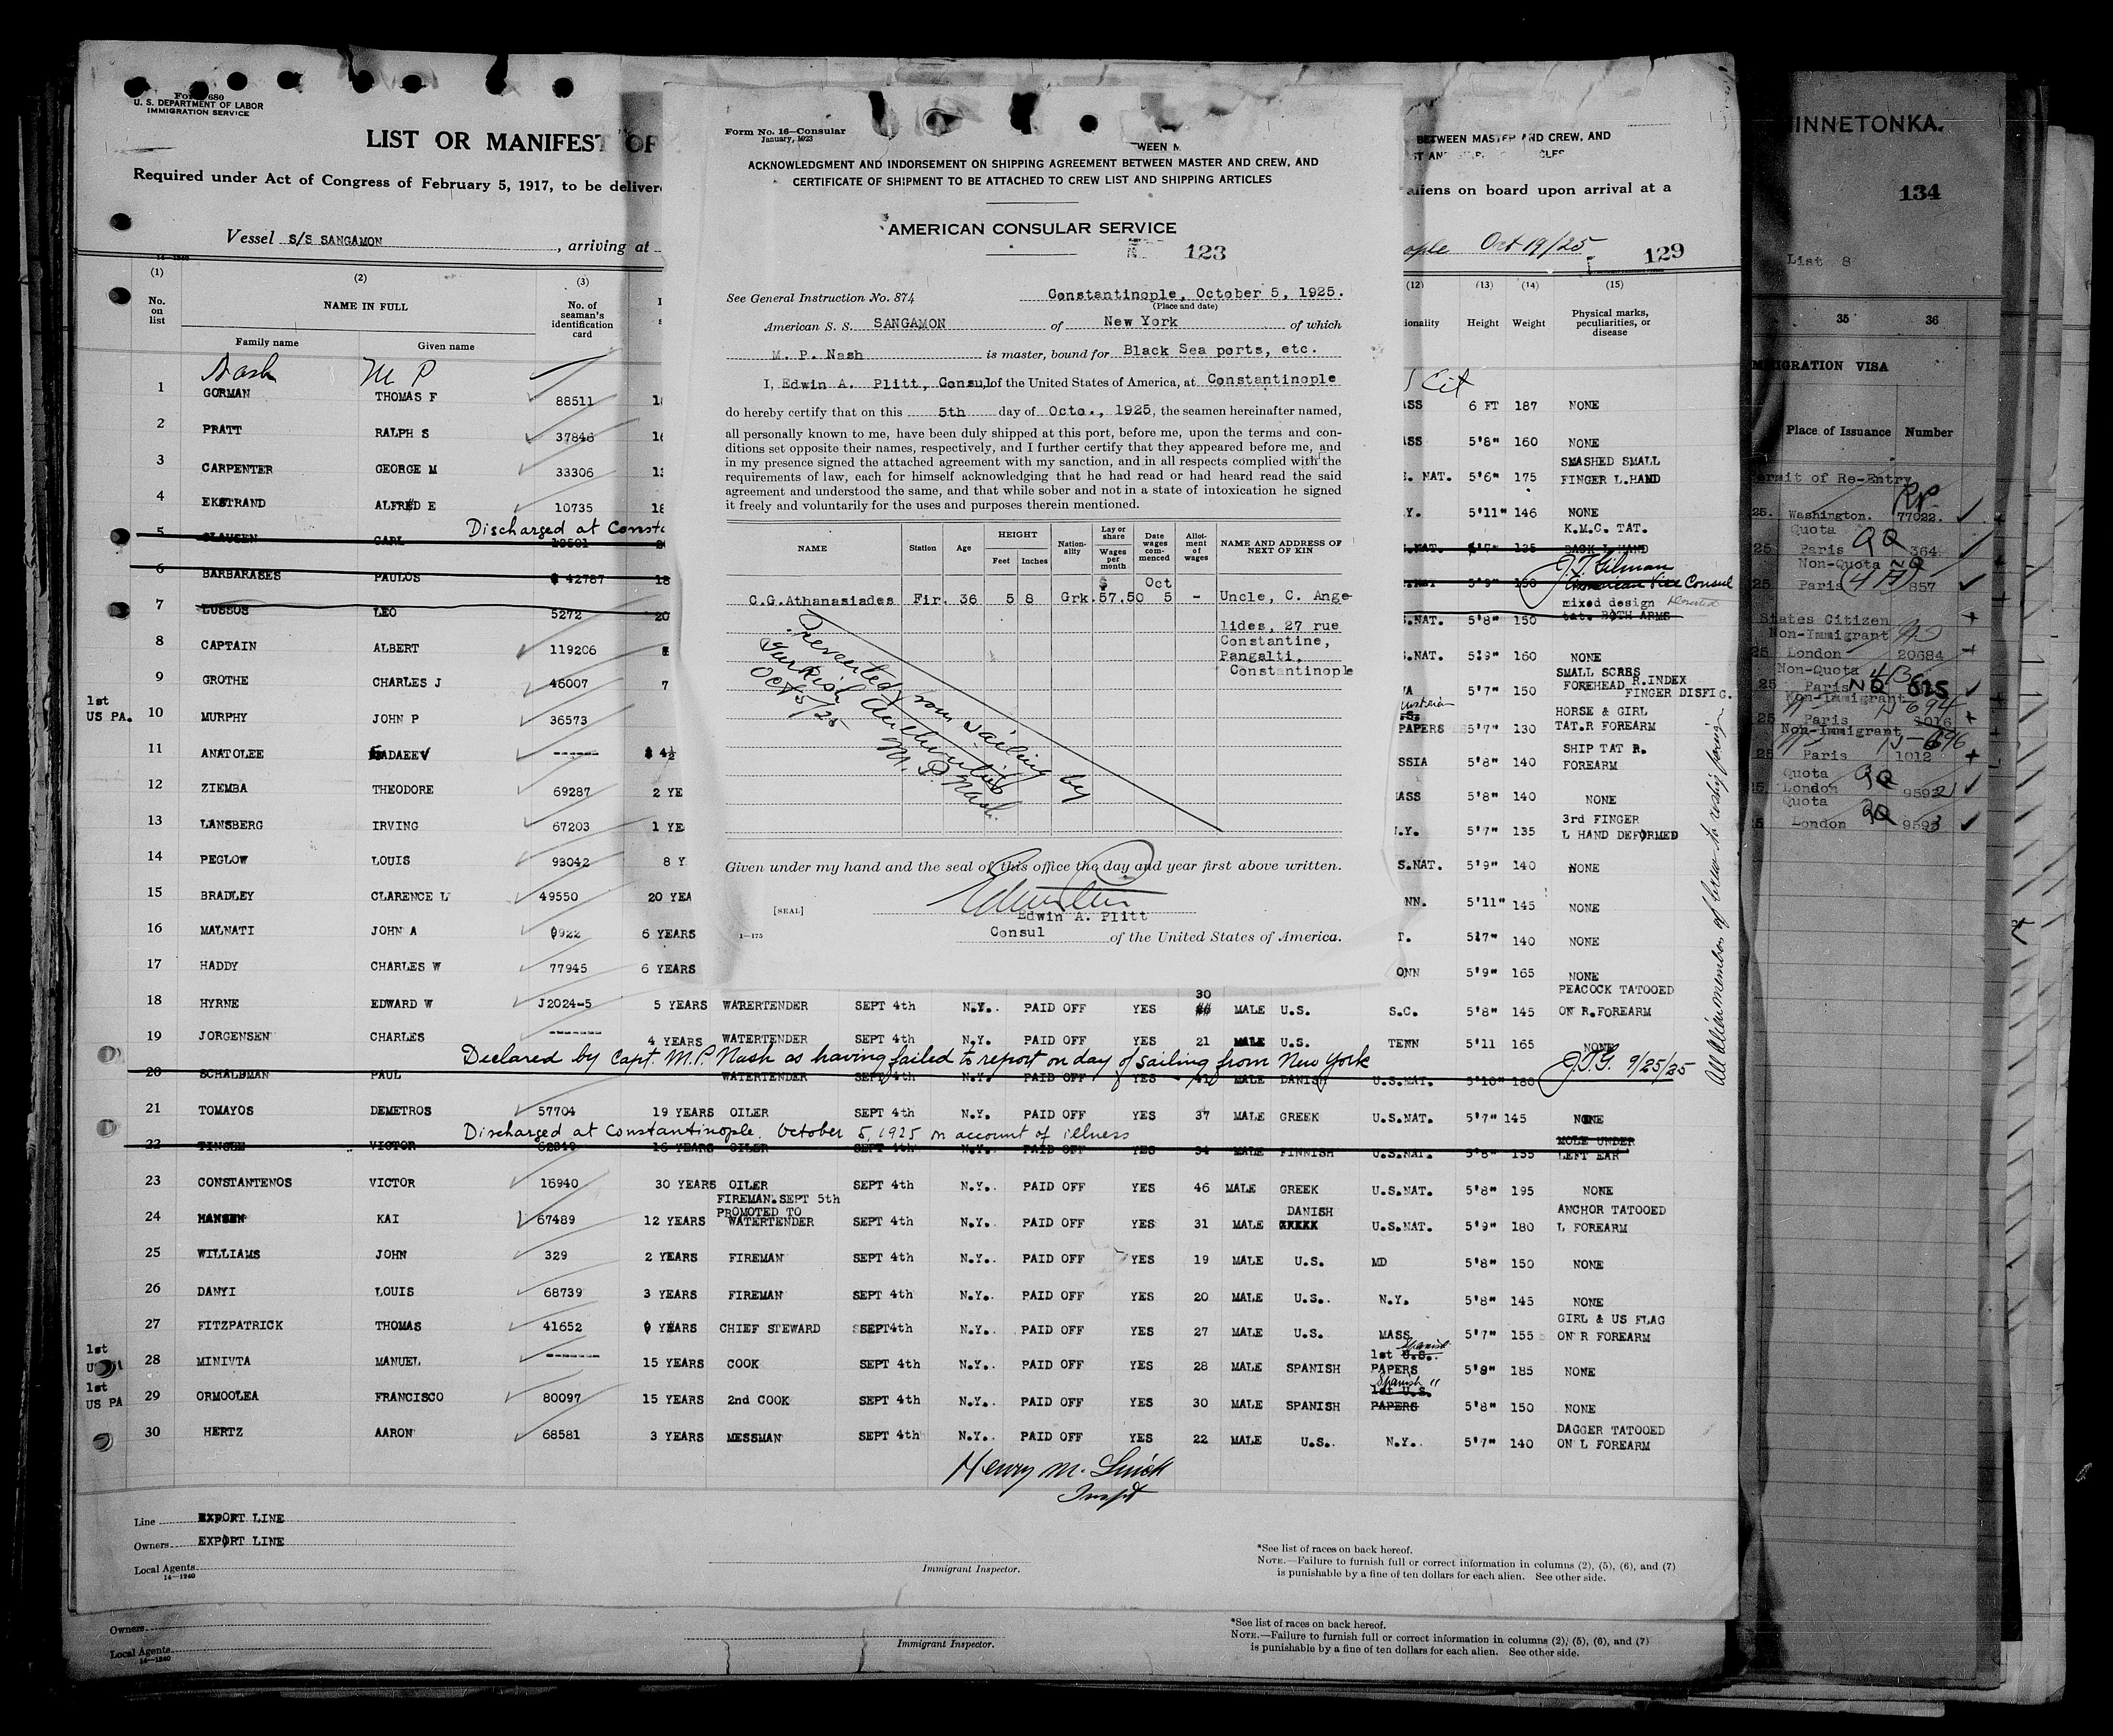 Form 680
U. S. DEPARTMENT OF LABOR
IMMIGRATION SERVICE
LIST OR MANIFEST OF
Required under Act of Congress of February 5, 1917, to be delivere
aliens on board upon arrival at a
Vessel S/S SANGAMON, arriving at
ople Oct 19/25 129
BETWEEN MASTER AND CREW, AND
(1) (2) (3) (12) (13) (14) (15)
No. on list NAME IN FULL No. of seaman's identification card ionality Height Weight Physical marks, peculiarities, or disease
Family name Given name
Nash M P Cit
1 GORMAN THOMAS F 88511 ASS 6 FT 187 NONE
2 PRATT RALPH S 37846 ASS 5'8" 160 NONE
3 CARPENTER GEORGE M 33306 . NAT. 5'6" 175 SMASHED SMALL FINGER L.HAND
4 EKSTRAND ALFRED E 10735 Y. 5'11" 146 NONE
Discharged at Const
5 CLAUSEN CARL .NAT. 135 K.M.C. TAT. BACK L HAND
J.T. Gilman
American Vice Consul
6 BARBARASES PAULOS 42787 18 5'9" 160
7 LUSSOS LEO 5272 20 S.NAT. 5'8" 150 mixed design tat. BOTH ARMS
8 CAPTAIN ALBERT 119206 S.NAT. 5'9" 160 NONE
9 GROTHE CHARLES J 46007 7 VA 5'7" 150 SMALL SCABS FOREHEAD R.INDEX FINGER DISFIG.
1st US PA. 10 MURPHY JOHN P 36573 PAPERS 5'7" 130 HORSE & GIRL TAT.R FOREARM
11 ANATOLEE GADAEEV ------ 4½ SSIA 5'8" 140 SHIP TAT R. FOREARM
12 ZIEMBA THEODORE 69287 2 YE ASS 5'8" 140 NONE
13 LANSBERG IRVING 67203 1 YE .Y. 5'7" 135 3rd FINGER L HAND DEFORMED
14 PEGLOW LOUIS 93042 8 Y S.NAT. 5'9" 140 NONE
15 BRADLEY CLARENCE L 49550 20 YEA NN. 5'11" 145 NONE
16 MALNATI JOHN A 9922 6 YEARS T. 5'7" 140 NONE
17 HADDY CHARLES W 77945 6 YEARS ONN 5'9" 165 NONE
18 HYRNE EDWARD W J2024-5 5 YEARS WATERTENDER SEPT 4th N.Y. PAID OFF YES 30 MALE U.S. S.C. 5'8" 145 PEACOCK TATOOED ON R.FOREARM
19 JORGENSEN CHARLES ------ 4 YEARS WATERTENDER SEPT 4th N.Y. PAID OFF YES 21 MALE U.S. TENN 5'11 165 NONE
Declared by Capt. M.P. Nash as having failed to report on day of sailing from New York J.T.G. 9/25/25
20 SCHALBMAN PAUL WATERTENDER SEPT 4th N.Y. PAID OFF YES 41 MALE DANISH U.S.NAT. 5'10" 180
21 TOMAYOS DEMETROS 57704 19 YEARS OILER SEPT 4th N.Y. PAID OFF YES 37 MALE GREEK U.S.NAT. 5'7" 145 NONE
Discharged at Constantinople. October 5, 1925 on account of illness
22 VICTOR 16 YEARS OILER SEPT 4th N.Y. PAID OFF YES 34 MALE FINNISH U.S.NAT. 5'8" 155 MOLE UNDER LEFT EAR
23 CONSTANTENOS VICTOR 16940 30 YEARS OILER SEPT 4th N.Y. PAID OFF YES 46 MALE GREEK U.S.NAT. 5'8" 195 NONE
24 HANSEN KAI 67489 12 YEARS FIREMAN.SEPT 5th PROMOTED TO WATERTENDER SEPT 4th N.Y. PAID OFF YES 31 MALE DANISH U.S.NAT. 5'9" 180 ANCHOR TATOOED L FOREARM
25 WILLIAMS JOHN 329 2 YEARS FIREMAN SEPT 4th N.Y. PAID OFF YES 19 MALE U.S. MD 5'8" 150 NONE
26 DANYI LOUIS 68739 3 YEARS FIREMAN SEPT 4th N.Y. PAID OFF YES 20 MALE U.S. N.Y. 5'8" 145 NONE
27 FITZPATRICK THOMAS 41652 9 YEARS CHIEF STEWARD SEPT4th N.Y. PAID OFF YES 27 MALE U.S. MASS. 5'7" 155 GIRL & US FLAG ON R FOREARM
1st 28 MINIVTA MANUEL ------ 15 YEARS COOK SEPT 4th N.Y. PAID OFF YES 28 MALE SPANISH 1st U.S. Spanish PAPERS 5'9" 185 NONE
1st US PA 29 ORMOOLEA FRANCISCO 80097 15 YEARS 2nd COOK SEPT 4th N.Y. PAID OFF YES 30 MALE SPANISH Spanish " 1st U.S. PAPERS 5'8" 150 NONE
30 HERTZ AARON 68581 3 YEARS MESSMAN SEPT 4th N.Y. PAID OFF YES 22 MALE U.S. N.Y. 5'7" 140 DAGGER TATOOED ON L FOREARM
Henry M.
Inspt
Line EXPORT LINE
Owners EXPORT LINE
Local Agents
14—1240
Immigrant Inspector.
*See list of races on back hereof.
NOTE.—Failure to furnish full or correct information in columns (2), (5), (6), and (7)
is punishable by a fine of ten dollars for each alien. See other side.
Owners
Local Agents
14—1240
Immigrant Inspector.
*See list of races on back hereof.
NOTE.—Failure to furnish full or correct information in columns (2), (5), (6), and (7)
is punishable by a fine of ten dollars for each alien. See other side.
Form No. 16—Consular
January, 1923
ACKNOWLEDGMENT AND INDORSEMENT ON SHIPPING AGREEMENT BETWEEN MASTER AND CREW, AND
CERTIFICATE OF SHIPMENT TO BE ATTACHED TO CREW LIST AND SHIPPING ARTICLES
AMERICAN CONSULAR SERVICE
123
See General Instruction No. 874 Constantinople, October 5, 1925.
(Place and date)
American S. S. SANGAMON of New York of which
M. P. Nash is master, bound for Black Sea ports, etc.
I, Edwin A. Plitt, Consul of the United States of America, at Constantinople
do hereby certify that on this 5th day of Octo., 1925, the seamen hereinafter named,
all personally known to me, have been duly shipped at this port, before me, upon the terms and con-
ditions set opposite their names, respectively, and I further certify that they appeared before me, and
in my presence signed the attached agreement with my sanction, and in all respects complied with the
requirements of law, each for himself acknowledging that he had read or had heard read the said
agreement and understood the same, and that while sober and not in a state of intoxication he signed
it freely and voluntarily for the uses and purposes therein mentioned.
NAME Station Age HEIGHT Feet Inches Nation-ality Lay or share Wages per month Date wages com-menced Allot-ment of wages NAME AND ADDRESS OF NEXT OF KIN
$ Oct
C.G.Athanasiades Fir. 36 5 8 Grk. 57.50 5 - Uncle, C. Ange-
lides, 27 rue
Constantine,
Pangalti,
Constantinople
Prevented from sailing by
Turkish Authorities
Oct 5/25 M. P. Nash.
Given under my hand and the seal of this office the day and year first above written.
[SEAL]
Edwin A. Plitt
1—175 Consul of the United States of America.
INNETONKA.
134
List 8
35 36
MMIGRATION VISA
Place of Issuance Number
ermit of Re-Entry
25. Washington. 77022.
Quota
25 Paris 364
Non-Quota
25 Paris 857
States Citizen
Non-Immigrant
25 London 20684
Non-Quota
25 Paris NQ 625
Non-Immigrant
25 Paris 1016
Non-Immigrant
25. Paris 1012
Quota
25. London 9592
Quota
London 9593